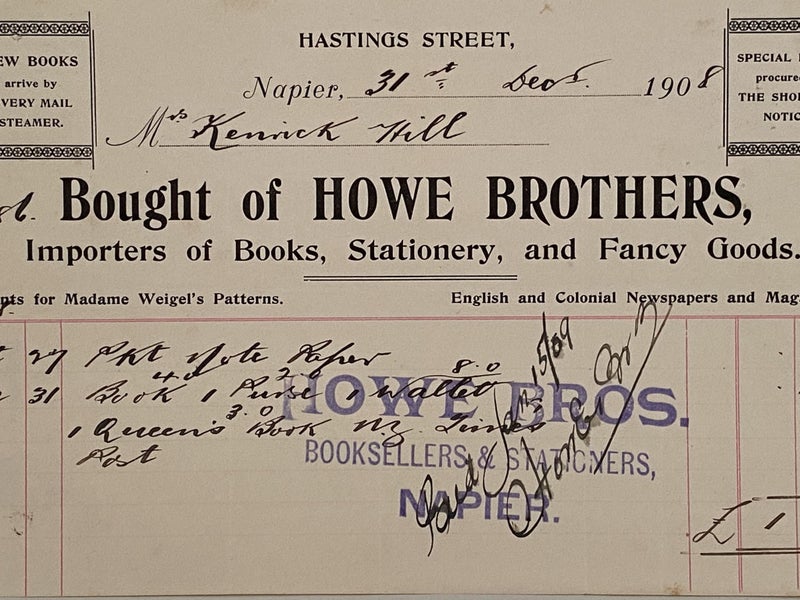 HASTINGS STREET,
EW BOOKS
arrive by
VERY MAIL
STEAMER.
SPECIAL
procure
THE SHO
NOTIC
Napier, 31st Decr. 1908
Mrs Kenrick Hill
Bought of HOWE BROTHERS,
Importers of Books, Stationery, and Fancy Goods.
nts for Madame Weigel's Patterns.
English and Colonial Newspapers and Mag
27 Pkt Note Paper
4.0 2.0 8.0
31 Book 1 Purse 1 Wallet
3.0
1 Queen's Book
Post
HOWE BROS.
BOOKSELLERS & STATIONERS,
NAPIER.
Paid Jan 15/09
£ 1